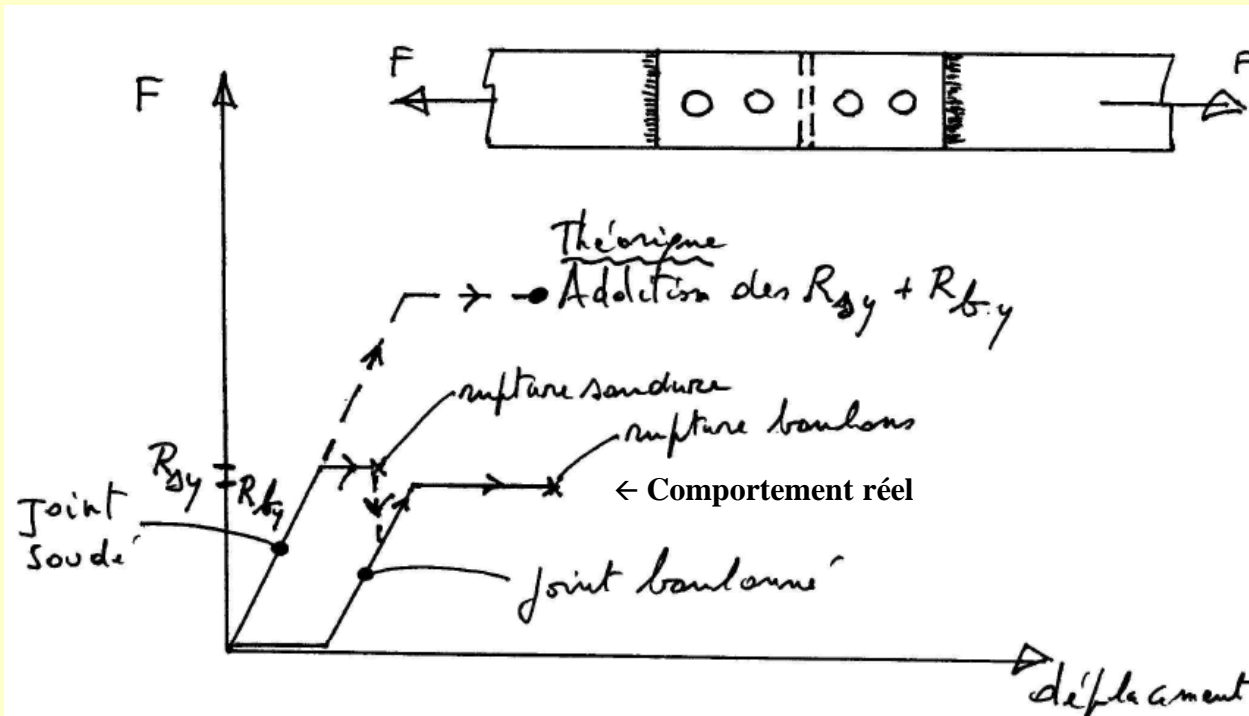 F
F
F
Théorique
Addition des Rsy + Rb.y
rupture soudure
rupture boulons
Rsy
Rby
← Comportement réel
Joint
soudé
joint boulonné
déplacement